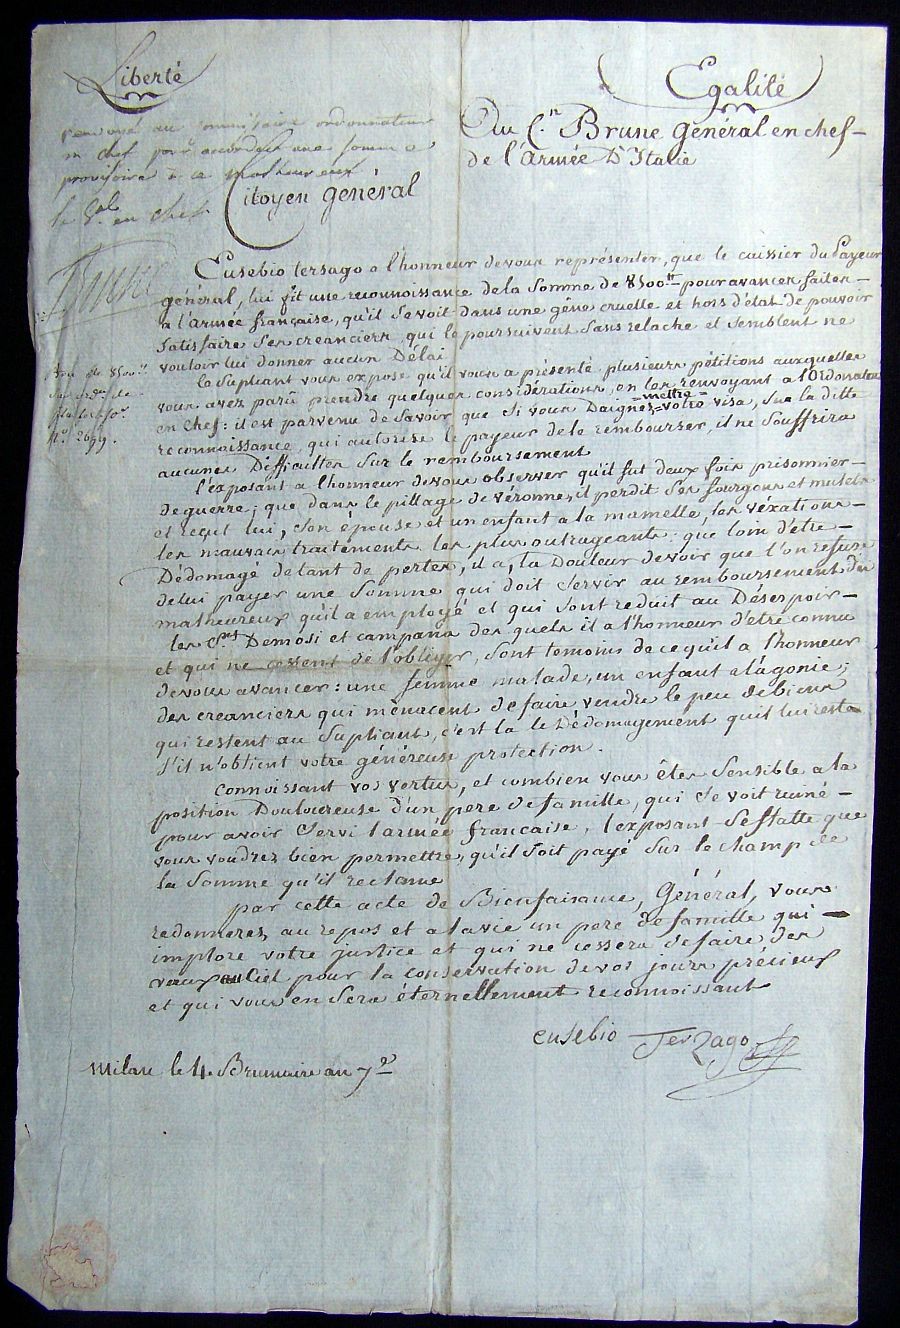 Liberté
Egalité
renvoyé au commissaire ordonnateur
en chef pour accorder une somme
provisoire à ce malheureux
le Gal en chef
Brune
Au C.n Brune Général en chef
de l'Armée D'Italie
Citoyen général
Eusebio tersago a l'honneur de vous représenter, que le caissier du Payeur
général, lui fit une reconnoissance de la Somme de 8500# pour avances faites
a l'armée française, qu'il se voit dans une gêne cruelle et hors d'état de pouvoir
Satisfaire Ses creanciers, qui le poursuivent Sans relache et Semblent ne
vouloir lui donner aucun Délai
Le Supliant vous expose qu'il vous a présenté plusieurs pétitions auxquelles
vous avez parû prendre quelques considérations, en les renvoyant a l'Ordonateur
en chef: il est parvenu de Savoir que Si vous Daignez mettre votre visa, Sur la ditte
reconnoissance, qui autorise le payeur de le rembourser, il ne Souffrira
aucunes Difficultes Sur le remboursement
l'exposant a l'honneur de vous observer qu'il fut deux fois prisonnier
de guerre; que dans le pillage de véronne, il perdit Ses fourgons et mulets
et reçut lui, Son épouse et un enfant a la mamelle, les véxations
les mauvais traitéments les plus outrageants: que loin d'etre
Dédomagé de tant de pertes, il a, la Douleur de voir que l'on refuse
de lui payer une Somme qui doit Servir au remboursement des
malheureux qu'il a employé et qui Sont reduit au Désespoir
les C.ns Demosi et campana des quels il a l'honneur d'etre connu
et qui ne cessent de l'obliger, Sont temoins de ce qu'il a l'honneur
de vous avancer: une femme malade, un enfant a l'agonie;
des creanciers qui ménacent de faire vendre le peu de biens
qui restent au Supliant, c'est la le Dédomagement qu'il lui reste
S'il n'obtient votre généreuse protection.
Connoissant vos vertus, et combien vous êtes Sensible a la
position Douloureuse d'un pere de famille, qui Se voit ruiné
pour avoir Servi l'armée française, l'exposant Se flatte que
vous voudrez bien permettre, qu'il Soit payé Sur le champ de
la Somme qu'il reclame
par cette acte de Bienfaisance, Général, vous
redonnerez au repos et a la vie un pere de famille qui
implore votre justice et qui ne cessera de faire des
vœux au Ciel pour la conservation de vos jours précieux
et qui vous en Sera éternellement reconnoissant
eusebio Terzago
Milan le 4 Brumaire an 7e